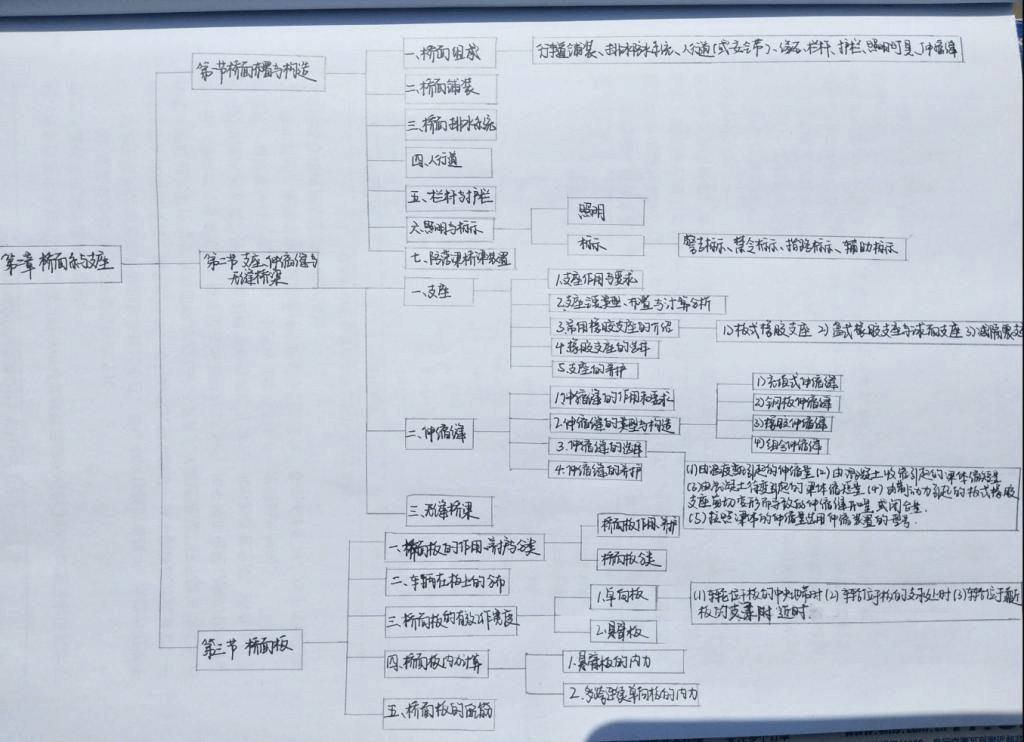 第二章 桥面系与支座
第一节 桥面布置与构造
一、桥面组成
行车道铺装、排水防水系统、人行道(或安全带)、缘石、栏杆、护栏、照明灯具、伸缩缝
二、桥面铺装
三、桥面排水系统
四、人行道
五、栏杆与护栏
六、照明与标示
照明
标示
警告标示、禁令标示、指路标示、辅助标示
七、防落梁桥梁装置
第二节 支座、伸缩缝与
无缝桥梁
一、支座
1.支座作用与要求
2.支座类型、布置与计算分析
3.常用橡胶支座的介绍
1)板式橡胶支座 2)盆式橡胶支座与球面支座 3)减隔震支
4.橡胶支座的选择
5.支座的养护
二、伸缩缝
1.伸缩缝的作用和要求
2.伸缩缝的类型与构造
1)无板式伸缩缝
2)钢板伸缩缝
3)橡胶伸缩缝
4)组合伸缩缝
3.伸缩缝的选择
(1)由温度变化引起的伸缩量 (2)由混凝土收缩引起的梁体缩短量
(3)由混凝土徐变引起的梁体缩短量 (4)由制动力引起的板式橡胶
支座剪切变形而导致的伸缩缝开量或闭合量.
(5)按照梁体的伸缩量选用伸缩装置的型号.
4.伸缩缝的养护
三、无缝桥梁
第三节 桥面板
一、桥面板的作用、养护与分类
桥面板作用、养护
桥面板分类
二、车辆在板上的分布
三、桥面板的有效工作宽度
1.单向板
(1)车轮位于板的中央地带时 (2)车轮位于板的支承处时 (3)车轮位于靠近
板的支承附近时.
2.悬臂板
四、桥面板内力计算
1.悬臂板的内力
2.多跨连续单向板的内力
五、桥面板的配筋